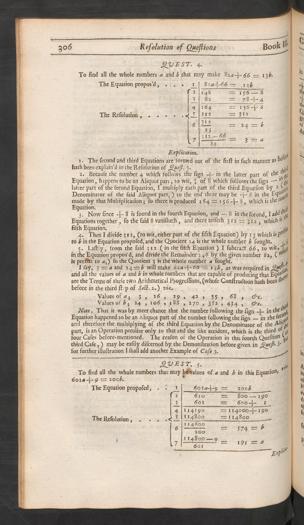 306 Resolution of Questions Book II.
QUEST. 4.
To find all the whole numbers a and b that may make 82a+66 = 13b.
The Equation propos'd, . . . 1 | 82a+66 = 13b
2 | 148 = 156 − 8
3 | 82 = 78 + 4
4 | 164 = 156 + 8
The Resolution, 5 | 312 = 312
6 | 312/13 = 24 = b
7 | 312 − 66/82 = 3 = a
Explication.
1. The second and third Equations are formed out of the first in such manner as
hath been explain'd in the Resolution of
2. Because the number 4 which follows the sign + in the latter part of the third
Equation, happens to be an Aliquot part, to wit, of 8 which follows the sign − in the
latter part of the second Equation, I multiply each part of the third Equation by 2 (the
Denominator of the said Aliquot part;) to the end there may be + 8 in the Equation
made by that Multiplication; so there is produced 164 = 156 + 8, which is the
Equation.
3. Now since + 8 is found in the fourth Equation, and − 8 in the second, I add those
Equations together, so the said 8 vanisheth, and there ariseth 312 = 312, which is the
fifth Equation.
4. Then I divide 312, (to wit, either part of the fifth Equation) by 13 which is
to b in the Equation proposed, and the Quotient 24 is the whole number b sought.
5. Lastly, from the said 312 (in the fifth Equation) I subtract 66, to wit,
in the Equation propos'd, and divide the Remainder 246 by the given number 82, (
is prefixt to a;) so the Quotient 3 is the whole number a sought.
I say, 3 = a and 24 = b will make 82a + 66 = 13b, as was required in
and all the values of a and b in whole numbers that are capable of producing that
are the Terms of these two Arithmetical Progressions, (whose Construction hath been
before in the third of Sect. 2.) viz.
Values of a; 3, 16, 29, 42, 55, 68, &c.
Values of b; 24, 106, 188, 270, 352, 434, &c.
Note, That it was by meer chance that the number following the sign + in the
Equation happened to be an Aliquot part of the number following the sign − in the second,
and therefore the multiplying of the third Equation by the Denominator of the Aliquot
part, is an Operation peculiar only to that and the like accident, which is the third of the
four Cases before-mentioned. The reason of the Operation in this fourth Question
third Case,) may be easily discerned by the Demonstration before given in
for further illustration I shall add another Example of Case 3.
QUEST. 5.
To find all the whole numbers that may be values of a and b in this Equation,
601a + 9 = 200b.
The Equation proposed, . . . 1 | 601a+9 = 200b
2 | 610 = 800 − 190
3 | 601 = 600 + 1
4 | 114190 = 114000+190
The Resolution, 5 | 114800 = 114800
6 | 114800/200 = 574 = b
7 | 114800−9/601 = 191 = a